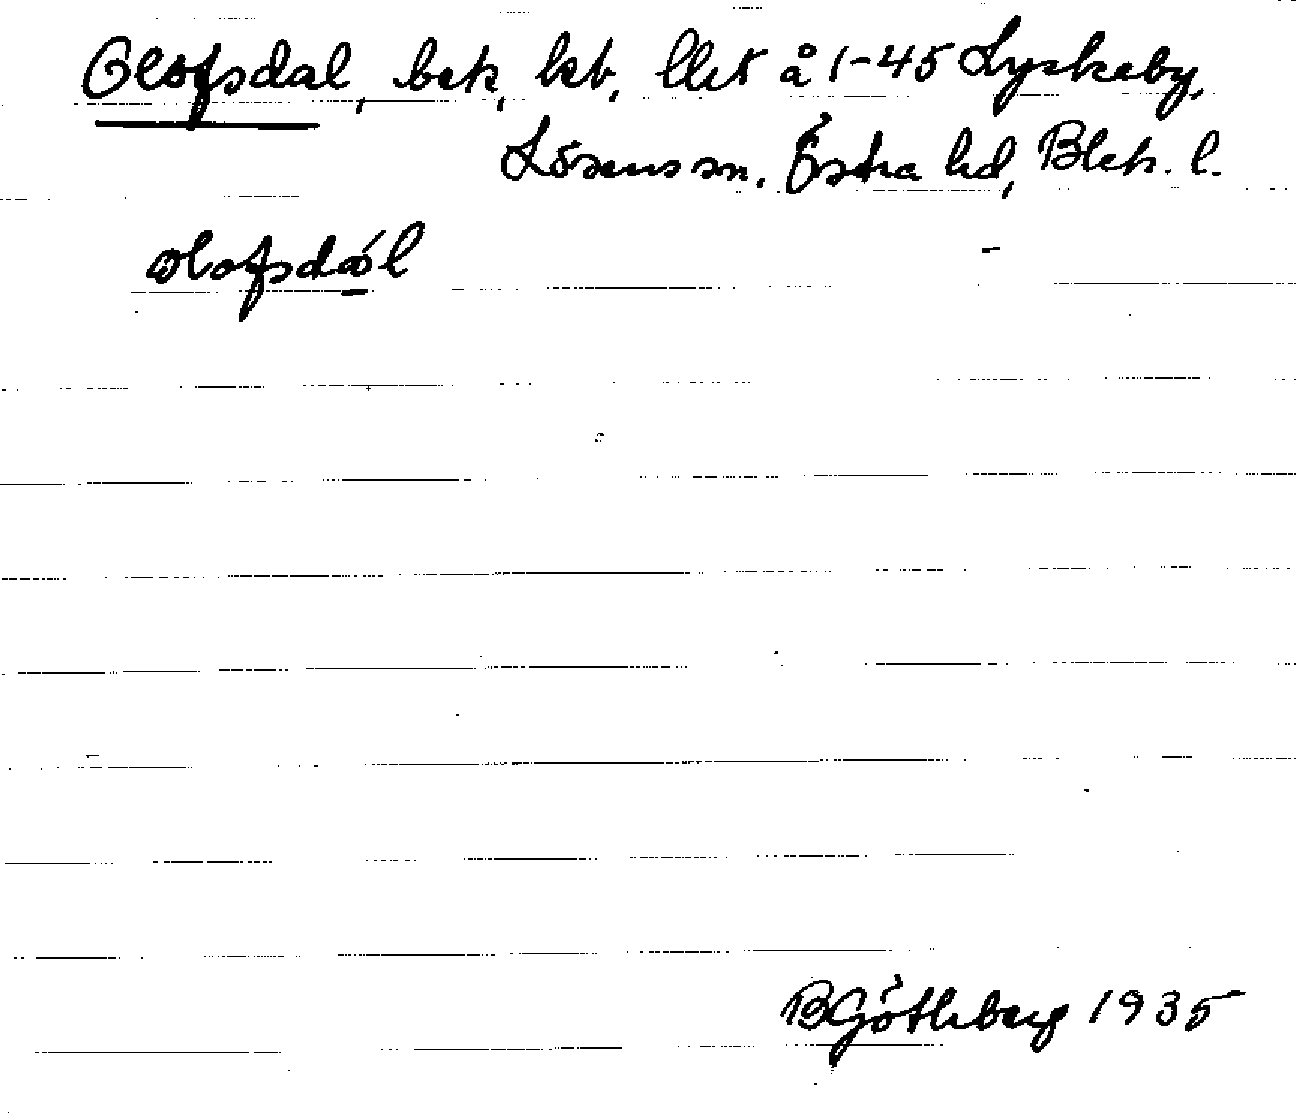 Olofsdal, bek, kt, llet å 1-45 Lyckeby,
Lösens sn. Östra hd, Blek. l.
olofsdál
BGöthberg 1935